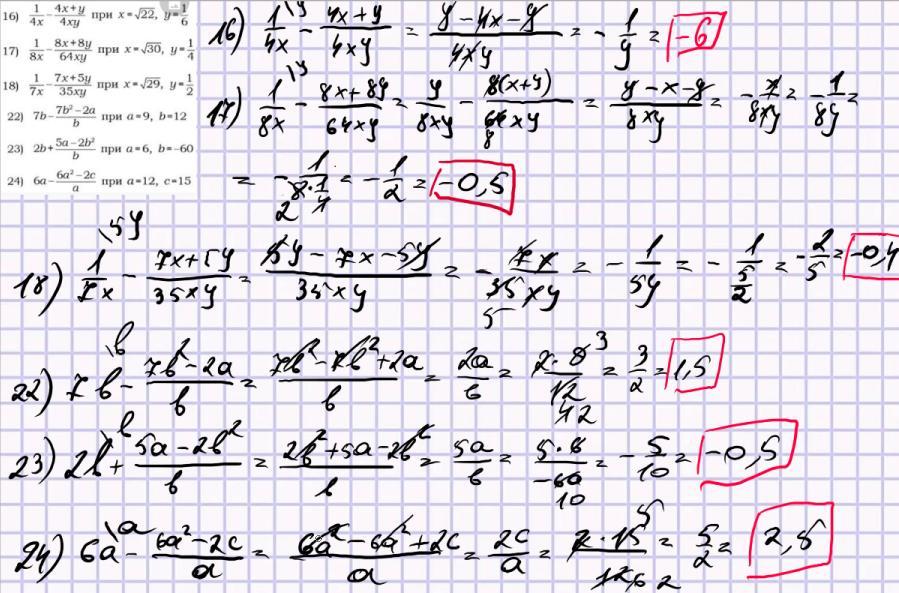 16) 1/4x - 4x+y/4xy при x=√22, y=1/6
17) 1/8x - 8x+8y/64xy при x=√30, y=1/4
18) 1/7x - 7x+5y/35xy при x=√29, y=1/2
22) 7b - 7b²-2a/b при a=9, b=12
23) 2b + 5a-2b²/b при a=6, b=-60
24) 6a - 6a²-2c/a при a=12, c=15
16) 1\y/4x - 4x+y/4xy = y-4x-y/4xy = -1/y = -6
17) 1\y/8x - 8x+8y/64xy = y/8xy - 8(x+y)/64xy 8 = y-x-y/8xy = -x/8xy = -1/8y =
= -1/8·1/4 2 1 = -1/2 = -0,5
18) 1\5y/7x - 7x+5y/35xy = 5y-7x-5y/35xy = -7x/35xy 5 = -1/5y = -1/5/2 = -2/5 = -0,4
22) 7b\b - 7b²-2a/b = 7b²-7b²+2a/b = 2a/b = 2·9 3/12 2 = 3/2 = 1,5
23) 2b\b + 5a-2b²/b = 2b²+5a-2b²/b = 5a/b = 5·6/-60 10 = -5/10 = -0,5
24) 6a\a - 6a²-2c/a = 6a²-6a²+2c/a = 2c/a = 2·15 5/12 6 2 = 5/2 = 2,5